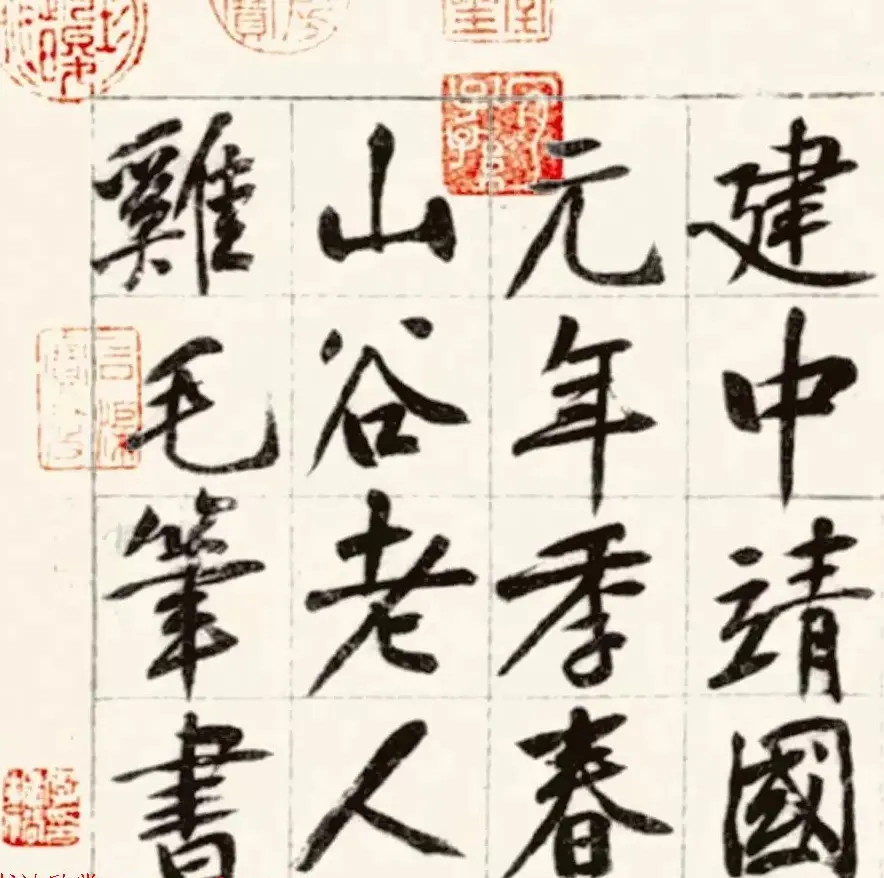 建中靖國
元年季春
山谷老人
雞毛筆書